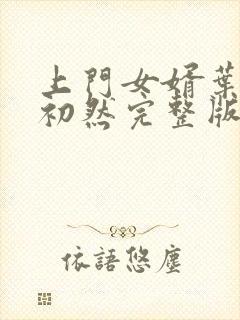 上門女婿葉
初然完整版
依語悠塵